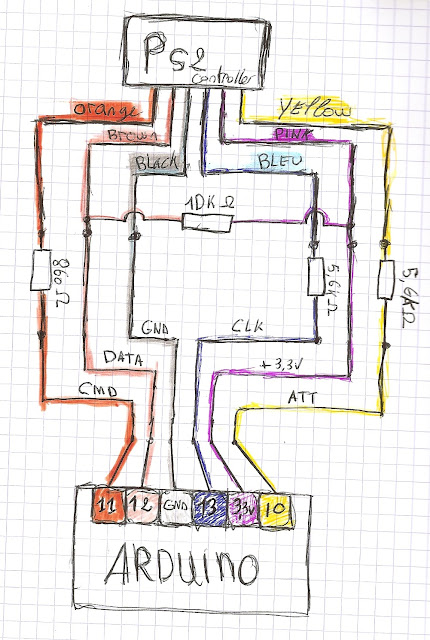 PS2
controller
Orange
Yellow
Brown
PINK
BLACK
BLEU
10KΩ
860Ω
5,6KΩ
5,6KΩ
GND
CLK
DATA
+3,3V
CMD
ATT
11
12
GND
13
3,3V
10
ARDUINO